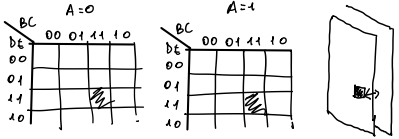 A=0
BC
DE
00 01 11 10
00
01
11
10
A=1
BC
DE
00 01 11 10
00
01
11
10